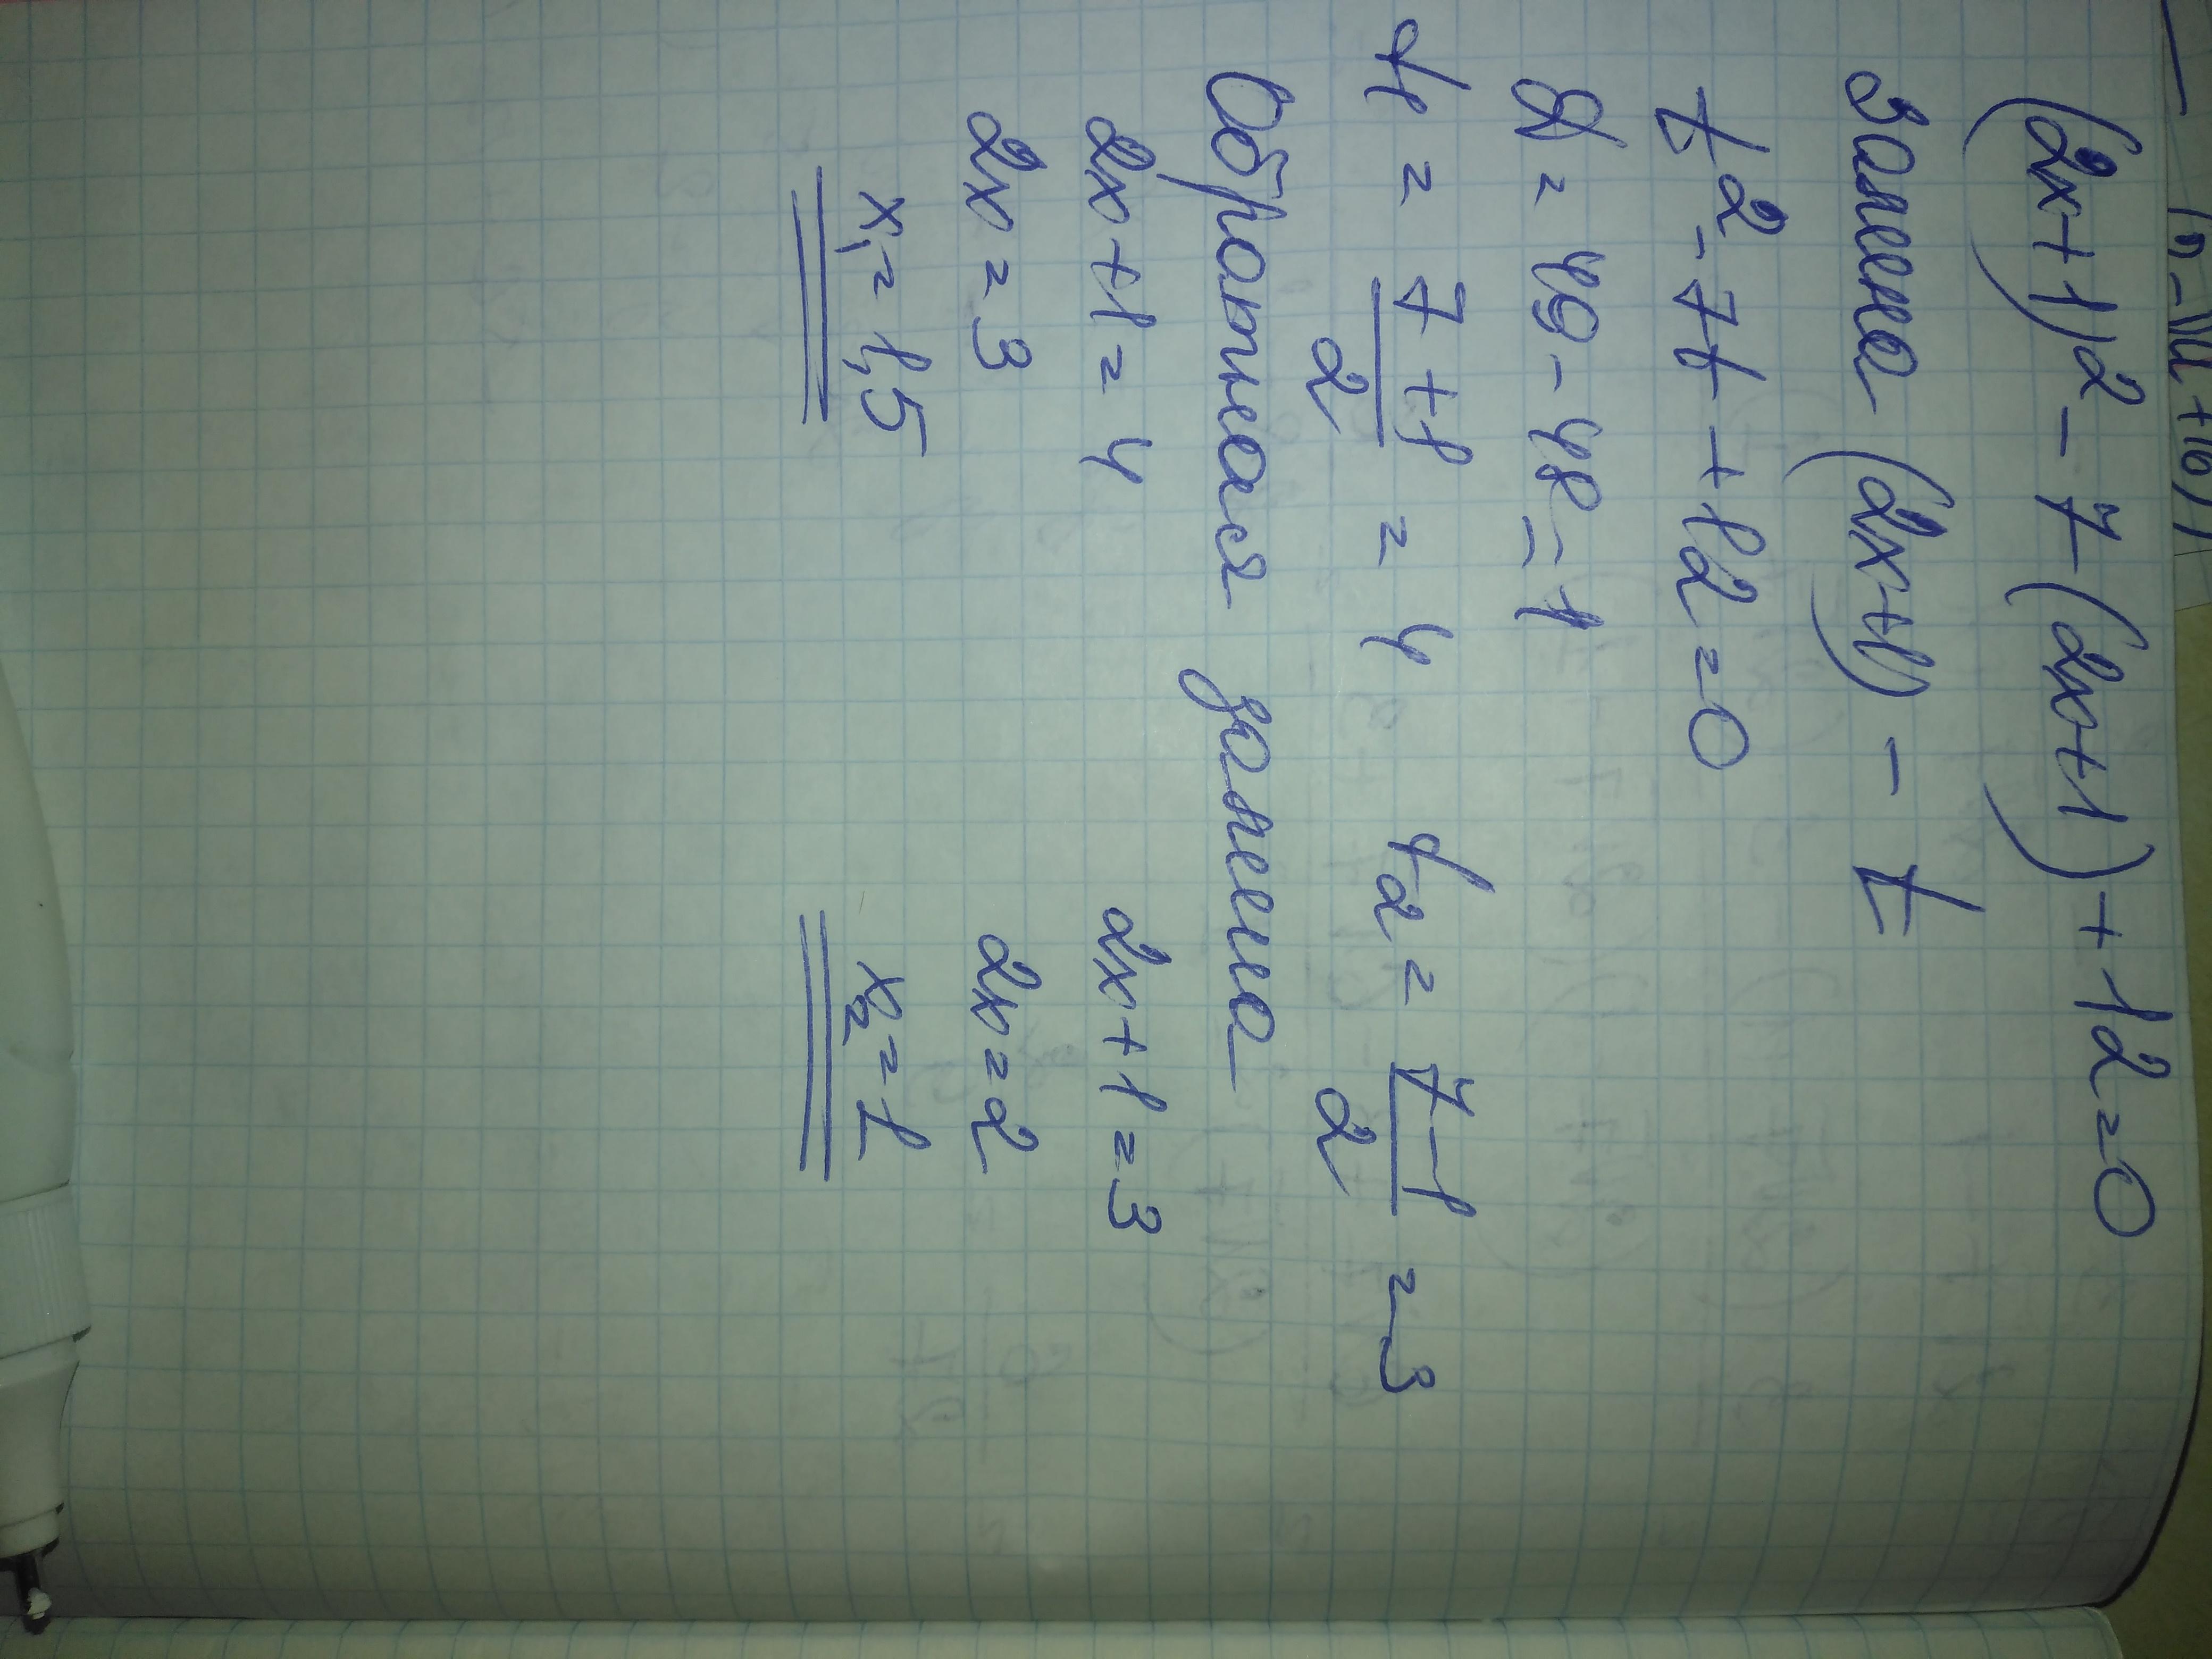 (2x+1)2 - 7(2x+1) + 12 = 0
Замена (2x+1) - t
t2 - 7t + 12 = 0
D = 49 - 48 = 1
t1 = 7+1/2 = 4 t2 = 7-1/2 = 3
Обратная замена
2x + 1 = 4 2x + 1 = 3
2x = 3 2x = 2
x1 = 1,5 x2 = 1